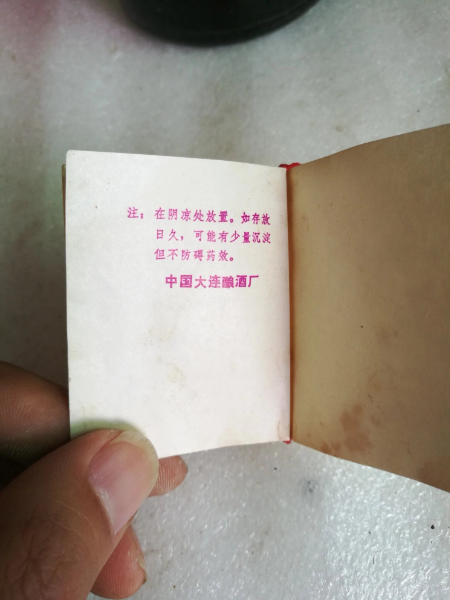 注：在阴凉处放置。如存放
日久，可能有少量沉淀
但不防碍药效。
中国大连酿酒厂